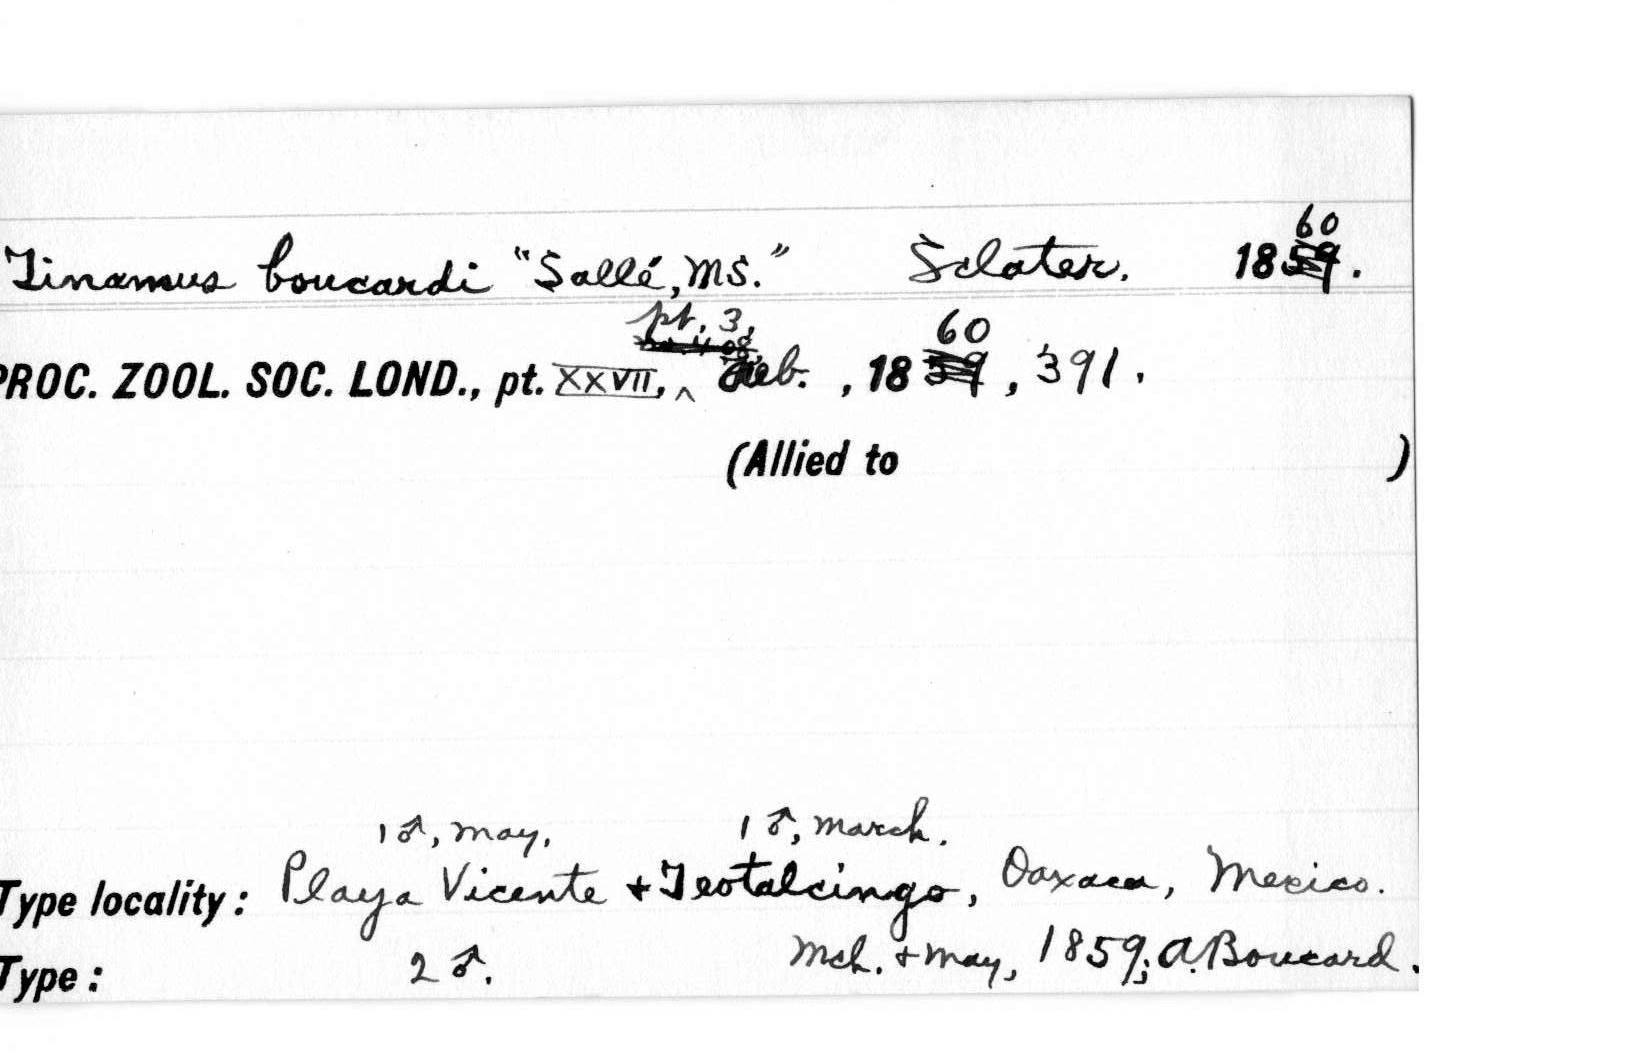 60
Tinamus boucardi "Sallé, MS." Sclater. 1859.
pt. 3, 60
PROC. ZOOL. SOC. LOND., pt. XXVII, ^ Feb. , 1859, 391.
(Allied to )
1♂, May, 1♂, March.
Type locality: Playa Vicente + Teotalcingo, Oaxaca, Mexico.
Type: 2♂. Mch. + May, 1859; A. Boucard.